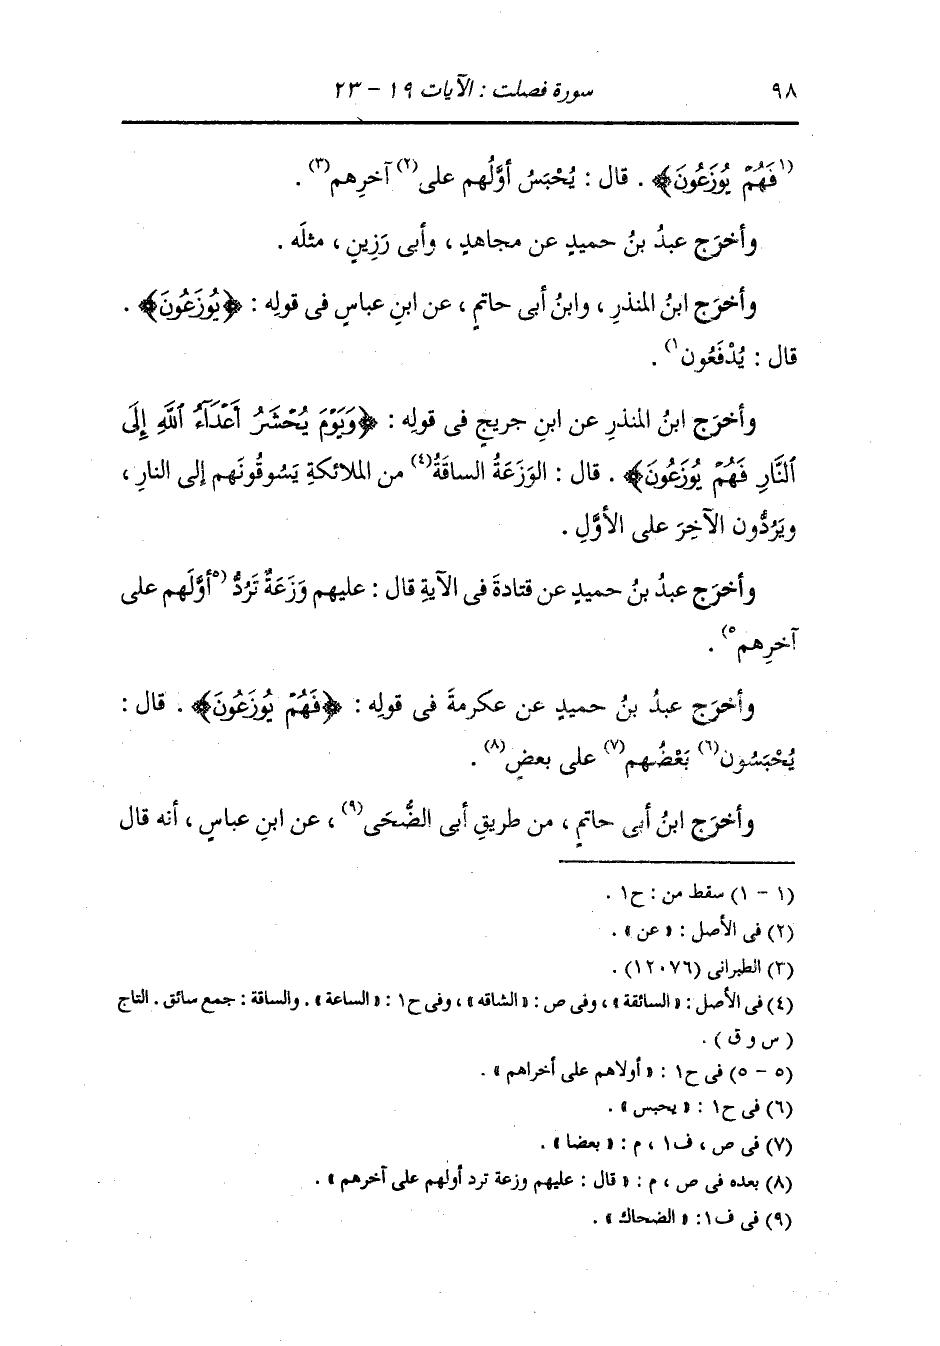 ٩٨ سورة فصلت : الآيات ١٩ - ٢٣
(١فَهُمْ يُوزَعُونَ﴾ . قال : يُحْبَسُ أوَّلُهم على(٢) آخرِهم(٣) .
وأخرَج عبدُ بنُ حميدٍ عن مجاهدٍ ، وأبى رَزِينٍ ، مثلَه .
وأخرَج ابنُ المنذرِ ، وابنُ أبى حاتمٍ ، عن ابنِ عباسٍ فى قولِه : ﴿يُوزَعُونَ﴾ .
قال : يُدْفَعُون١) .
وأخرَج ابنُ المنذرِ عن ابنِ جريجٍ فى قولِه : ﴿وَيَوْمَ يُحْشَرُ أَعْدَآءُ ٱللَّهِ إِلَى
ٱلنَّارِ فَهُمْ يُوزَعُونَ﴾ . قال : الوَزَعَةُ الساقَةُ(٤) من الملائكةِ يَسُوقُونَهم إلى النارِ ،
ويَرُدُّون الآخِرَ على الأوَّلِ .
وأخرَج عبدُ بنُ حميدٍ عن قتادةَ فى الآيةِ قال : عليهم وَزَعَةٌ تَرُدُّ (٥أوَّلَهم على
آخرِهم٥) .
وأخرَج عبدُ بنُ حميدٍ عن عكرمةَ فى قولِه : ﴿فَهُمْ يُوزَعُونَ﴾ . قال :
يُحْبَسُون(٦) بَعْضُهم(٧) على بعضٍ(٨) .
وأخرَج ابنُ أبى حاتمٍ ، من طريقِ أبى الضُّحَى(٩) ، عن ابنِ عباسٍ ، أنه قال
(١ - ١) سقط من : ح١ .
(٢) فى الأصل : « عن » .
(٣) الطبرانى (١٢٠٧٦) .
(٤) فى الأصل : « السائقة » ، وفى ص : « الشاقه » ، وفى ح١ : « الساعة » . والساقة : جمع سائق . التاج
( س و ق ) .
(٥ - ٥) فى ح١ : « أولاهم على أخراهم » .
(٦) فى ح١ : « يحبس » .
(٧) فى ص ، ف١ ، م : « بعضا » .
(٨) بعده فى ص ، م : « قال : عليهم وزعة ترد أولهم على آخرهم » .
(٩) فى ف١: « الضحاك » .